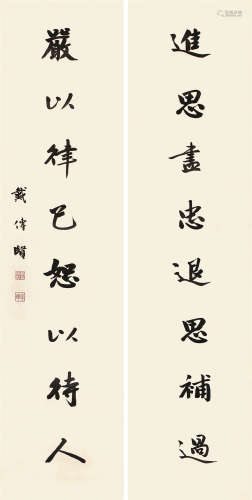 進思盡忠退思補過
嚴以律己恕以待人
戴傳賢